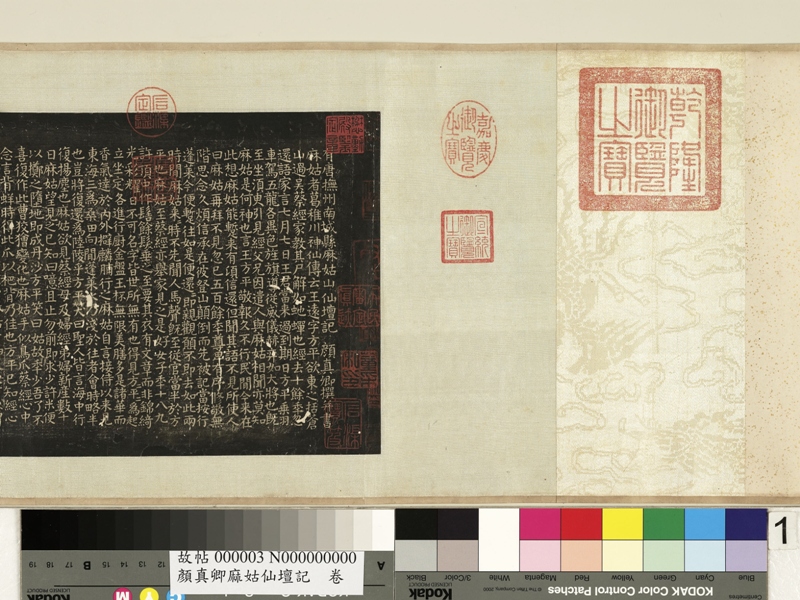 乾隆御覽之寶
嘉慶御覽之寶
宣統御覽之寶
有唐撫州南城縣麻姑山仙壇記 顏真卿撰并書
麻姑者葛稚川神仙傳云王遠字方平欲東之括蒼
山過吳蔡經家教其尸解如蛇蟬也經去十餘年忽
還語家言七月七日王君當來過到期日方平乘羽
車駕五龍各異色旌旗導從威儀赫弈如大將也既
至坐須臾引見經父兄因遣人與麻姑相聞亦莫知
麻姑是何神也言王方平敬報久不行民間今來在
此想麻姑能暫來有頃信還但聞其語不見所使人
曰麻姑再拜不見忽已五百餘年尊卑有序修敬無
階思念久煩信承在彼登山顛倒而先被記當按行
蓬萊今便暫往如是便還還即親觀願不即去如此兩
時間麻姑來時不先聞人馬聲既至從官當半於方
平也麻姑至蔡經亦舉家見之是好女子年十八九
許頂中作髻餘髮垂之至要其衣有文章而非錦綺
光彩耀日不可名字皆世所無有也得見方平方平為起
立坐定各進行廚金盤玉杯無限美膳多是諸華而
香氣達於內外擗麟脯行之麻姑自言接待以來見
東海三為桑田向間蓬萊水乃淺於往者會時略半
也豈將復還為陸陵乎方平笑曰聖人皆言海中行
復揚塵也麻姑欲見蔡經母及婦經弟婦新產數十
日麻姑望見之已知曰噫且止勿前即求少許米便
以擲之墮地即成丹沙方平笑曰姑故年少吾了不
喜復作此曹狡獪變化也麻姑手似鳥爪蔡經心中
念言背蛘時得此爪以杷背乃佳也方平已知經心
1
故帖 000003 N000000000
顏真卿麻姑仙壇記 卷
KODAK Color Control Patches
Blue Cyan Green Yellow Red Magenta White 3/Color Black
Kodak
A
B
M
Y
C